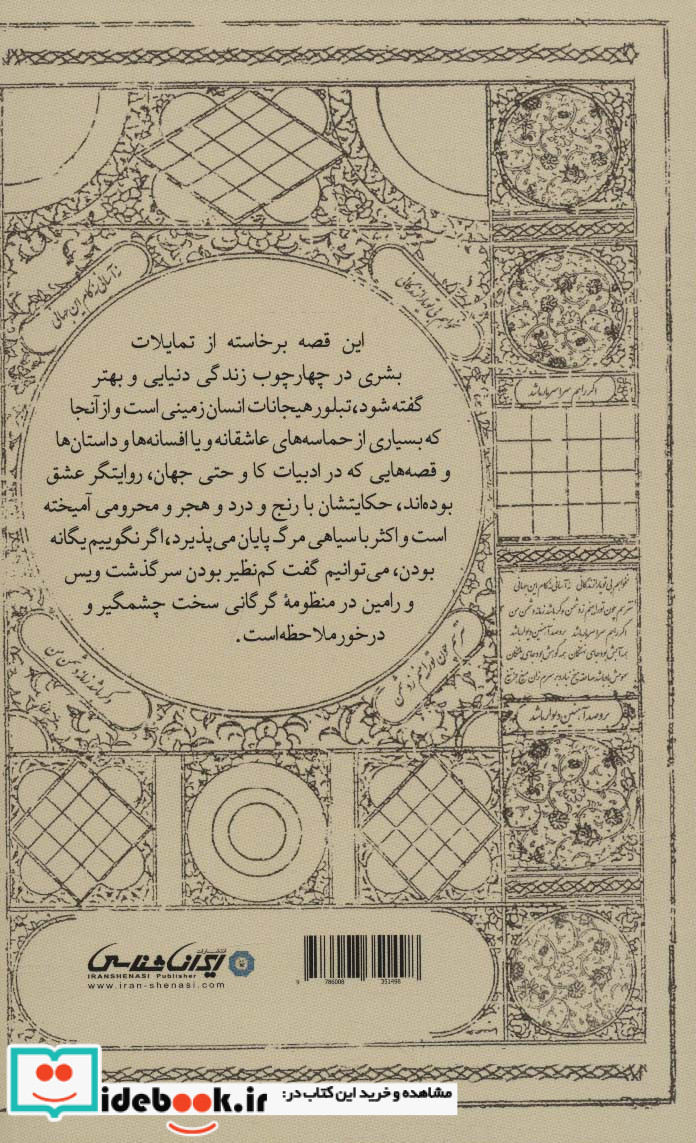 این قصه برخاسته از تمایلات
بشری در چهارچوب زندگی دنیایی و بهتر
گفته شود، تبلور هیجانات انسان زمینی است و از آنجا
که بسیاری از حماسه‌های عاشقانه و یا افسانه‌ها و داستان‌ها
و قصه‌هایی که در ادبیات کا و حتی جهان، روایتگر عشق
بوده‌اند، حکایتشان با رنج و درد و هجر و محرومی آمیخته
است و اکثر با سیاهی مرگ پایان می‌پذیرد، اگر نگوییم یگانه
بودن، می‌توانیم گفت کم‌نظیر بودن سرگذشت ویس
و رامین در منظومهٔ گرگانی سخت چشمگیر و
درخور ملاحظه است.
نخواهم بی تو یار از زندگانی
نه آسانی نه کام این جهانی
اگر راهم سراسر مار باشد
برو صد آهنین دیوار باشد
انتشارات
ایرانشناسی
IRANSHENASI Publisher
www.iran-shenasi.com
9 786008 351498
مشاهده و خرید این کتاب در:
idebook.ir